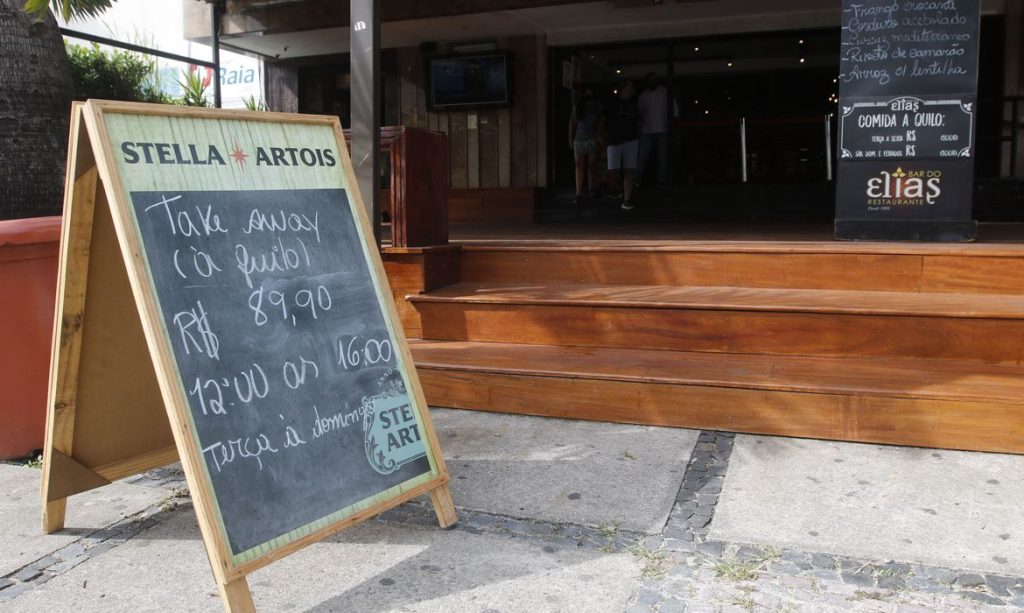 Raia
STELLA ARTOIS
Take away
(à quilo)
R$ 89,90
12:00 as 16:00
Terça à domingo
ANNO
STE
ART
Frango crocante
acebolado
mediterrâneo
de camarão
Arroz c/ lentilha
elias
COMIDA A QUILO:
TERÇA A SEXTA R$
SÁB, DOM. E FERIADOS R$
elias
BAR DO
RESTAURANTE